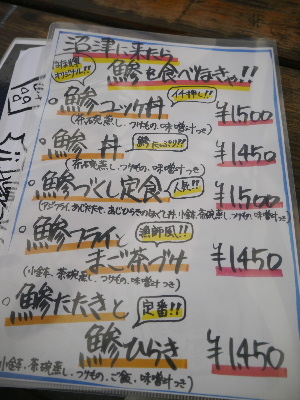 沼津に来たら
鯵を食べなきゃ!!
オリジナル!!
イチ押し!!
・鯵ユッケ丼 ¥1500
(茶碗蒸し、つけもの、味噌汁つき)
・鯵丼 ¥1450
鯵たっぷり!!
(茶碗蒸し、つけもの、味噌汁つき)
・鯵づくし定食 ¥1500
人気!!
(アジフライ、あじたたき、あじひらきのほぐし丼、小鉢、茶碗蒸し、つけもの、味噌汁)
・鯵フライと
漁師風!!
まご茶づけ ¥1450
(小鉢、茶碗蒸し、つけもの、味噌汁つき)
・鯵たたきと
定番!!
鯵ひらき ¥1450
(小鉢、茶碗蒸し、つけもの、ご飯、味噌汁つき)